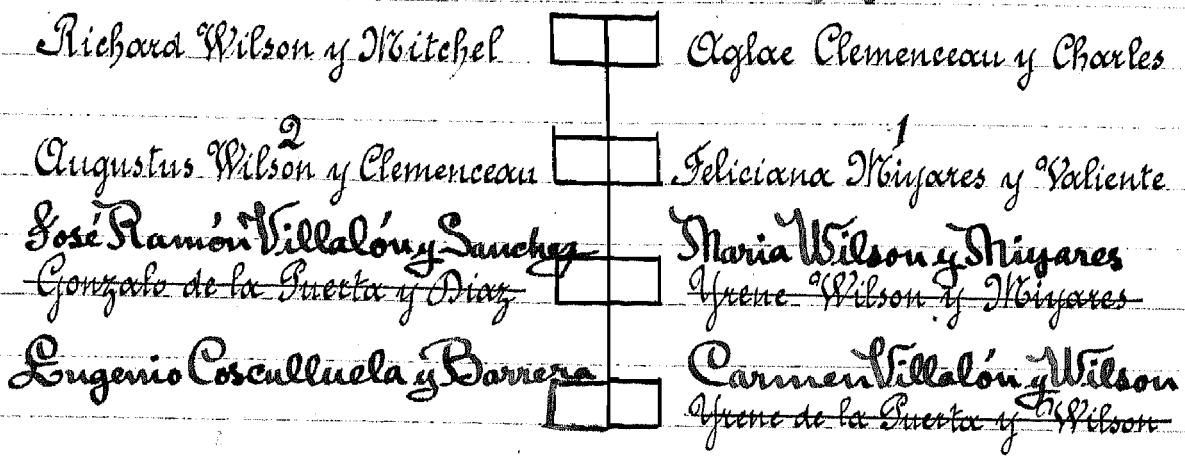 Richard Wilson y Mitchel Aglae Clemenceau y Charles
2 1
Augustus Wilson y Clemenceau Feliciana Miyares y Valiente
José Ramón Villalón y Sanchez Maria Wilson y Miyares
Gonzalo de la Puerta y Diaz Yrene Wilson y Miyares
Eugenio Cosculluela y Barrera Carmen Villalón y Wilson
Yrene de la Puerta y Wilson